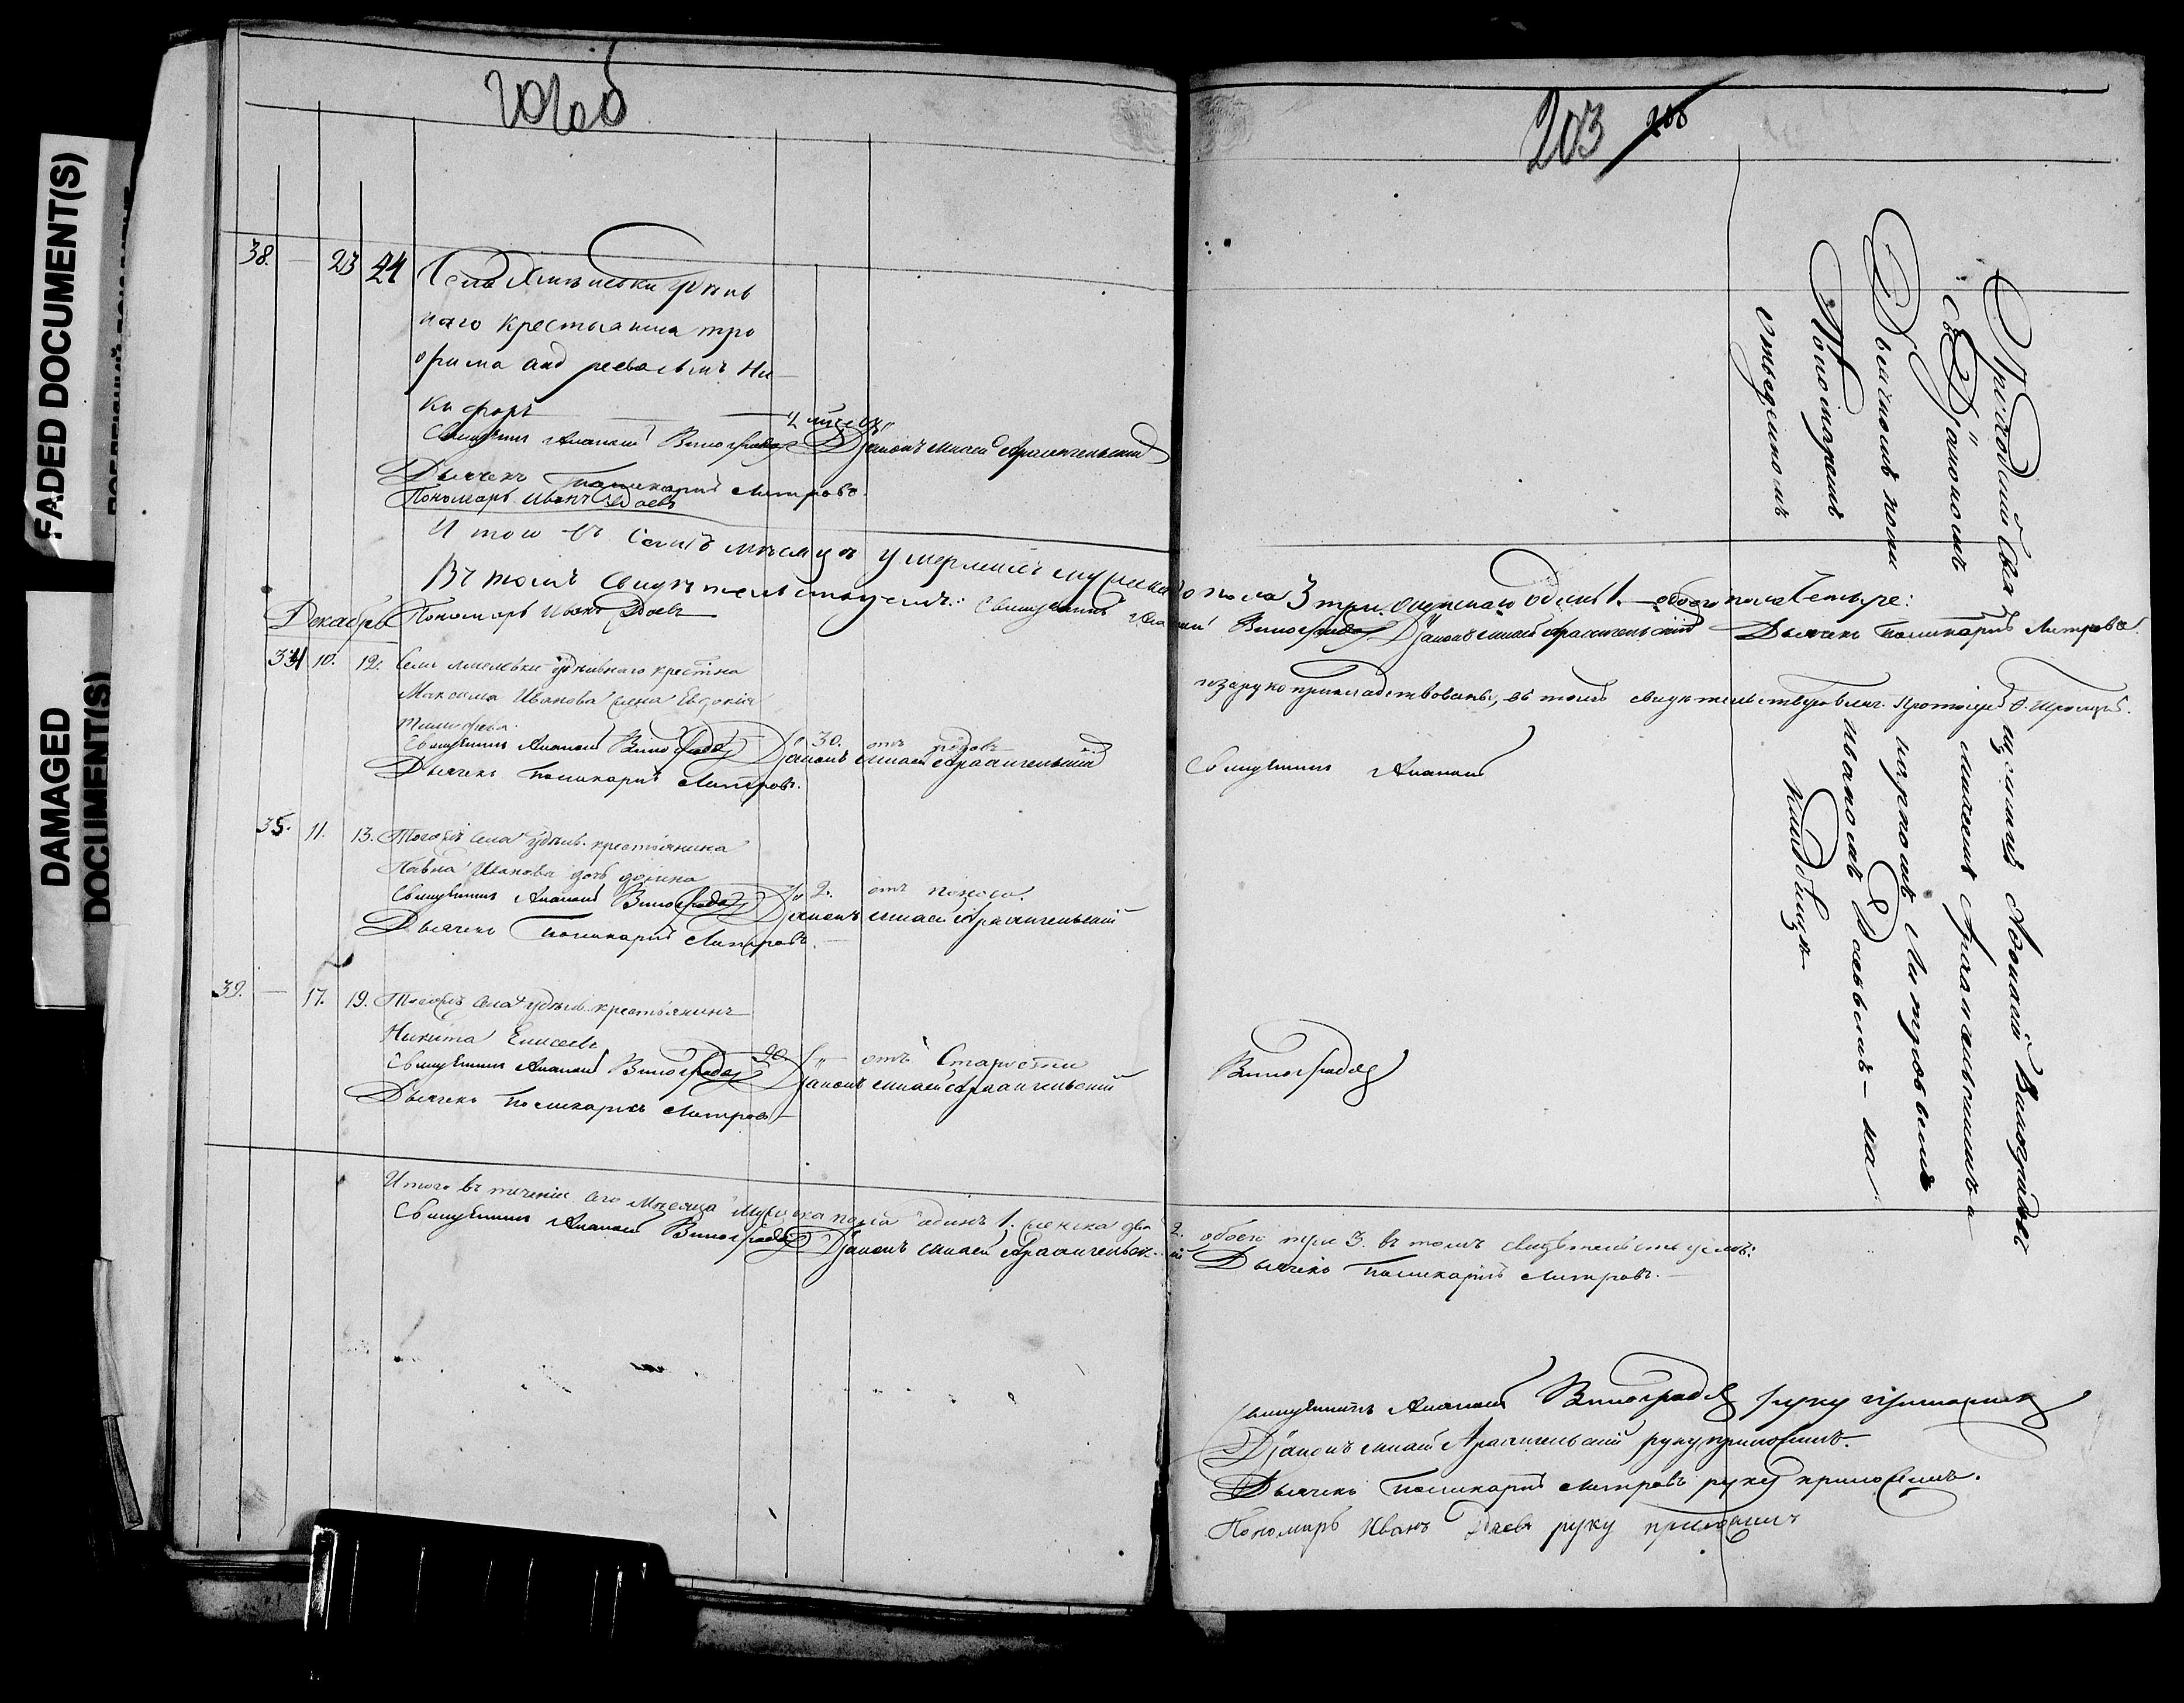 202 об
203
FADED DOCUMENT(S)
DAMAGED DOCUMENT(S)
38. — 23 24 Села удѣль
наго крестьянина Тро
фима Андреева сынъ Ни
кифоръ
Священникъ Ананий Виноградов Дiаконъ Минай Архангельский
Дьячекъ Поликарпъ Митровъ.
Пономарь Иванъ Доевъ
Итого въ семъ мѣсяцѣ умерших мужеска пола 3 три. женскаго одна 1. — обоего пола четыре:
Въ томъ свидѣтельствуемъ: Священникъ Ананий Виноградов Дiаконъ Минай Архангельскiй Дьячекъ Поликарпъ Митровъ.
Декабрь Пономарь Иванъ Доевъ
34 10. 12. Села удѣльнаго крестьна
Максима Иванова жена Евдокия
30. отъ родовъ
Священникъ Ананий Виноградов Дiаконъ Минай Архангельский
Дьячекъ Поликарпъ Митровъ.
35. 11. 13. Тогожъ села удѣльн. крестьянина
Павла Иванова дочь
2. отъ поноса.
Священникъ Ананий Виноградов Дiаконъ Минай Архангельский
Дьячекъ Поликарпъ Митровъ.
39. — 17. 19. Тогожъ села удѣльн. крестьянинъ
Никита Елисеевъ
90. — отъ старости
Священникъ Ананий Виноградов Дiаконъ Минай Архангельский
Дьячекъ Поликарпъ Митровъ
Итого въ течении сего мѣсяца мужеска пола одинъ 1. женска два 2. обоего три 3. въ томъ свидѣтельствуемъ:
Священникъ Ананий Виноградов Дiаконъ Минай Архангельский Дьячекъ Поликарпъ Митровъ.
въ томъ свидѣтельствуемъ Протоиерей
Священникъ Ананий
Виноградов
Приходский священникъ Ананий Виноградовъ
съ Дiакономъ Минаемъ Архангельскимъ
Дьячкомъ Поликарпомъ Митровымъ
Пономаремъ Иваномъ Доевымъ — на
Священникъ Ананий Виноградов руку приложилъ
Дiаконъ Минай Архангельский руку приложилъ.
Дьячекъ Поликарпъ Митровъ руку приложилъ.
Пономарь Иванъ Доевъ руку приложилъ